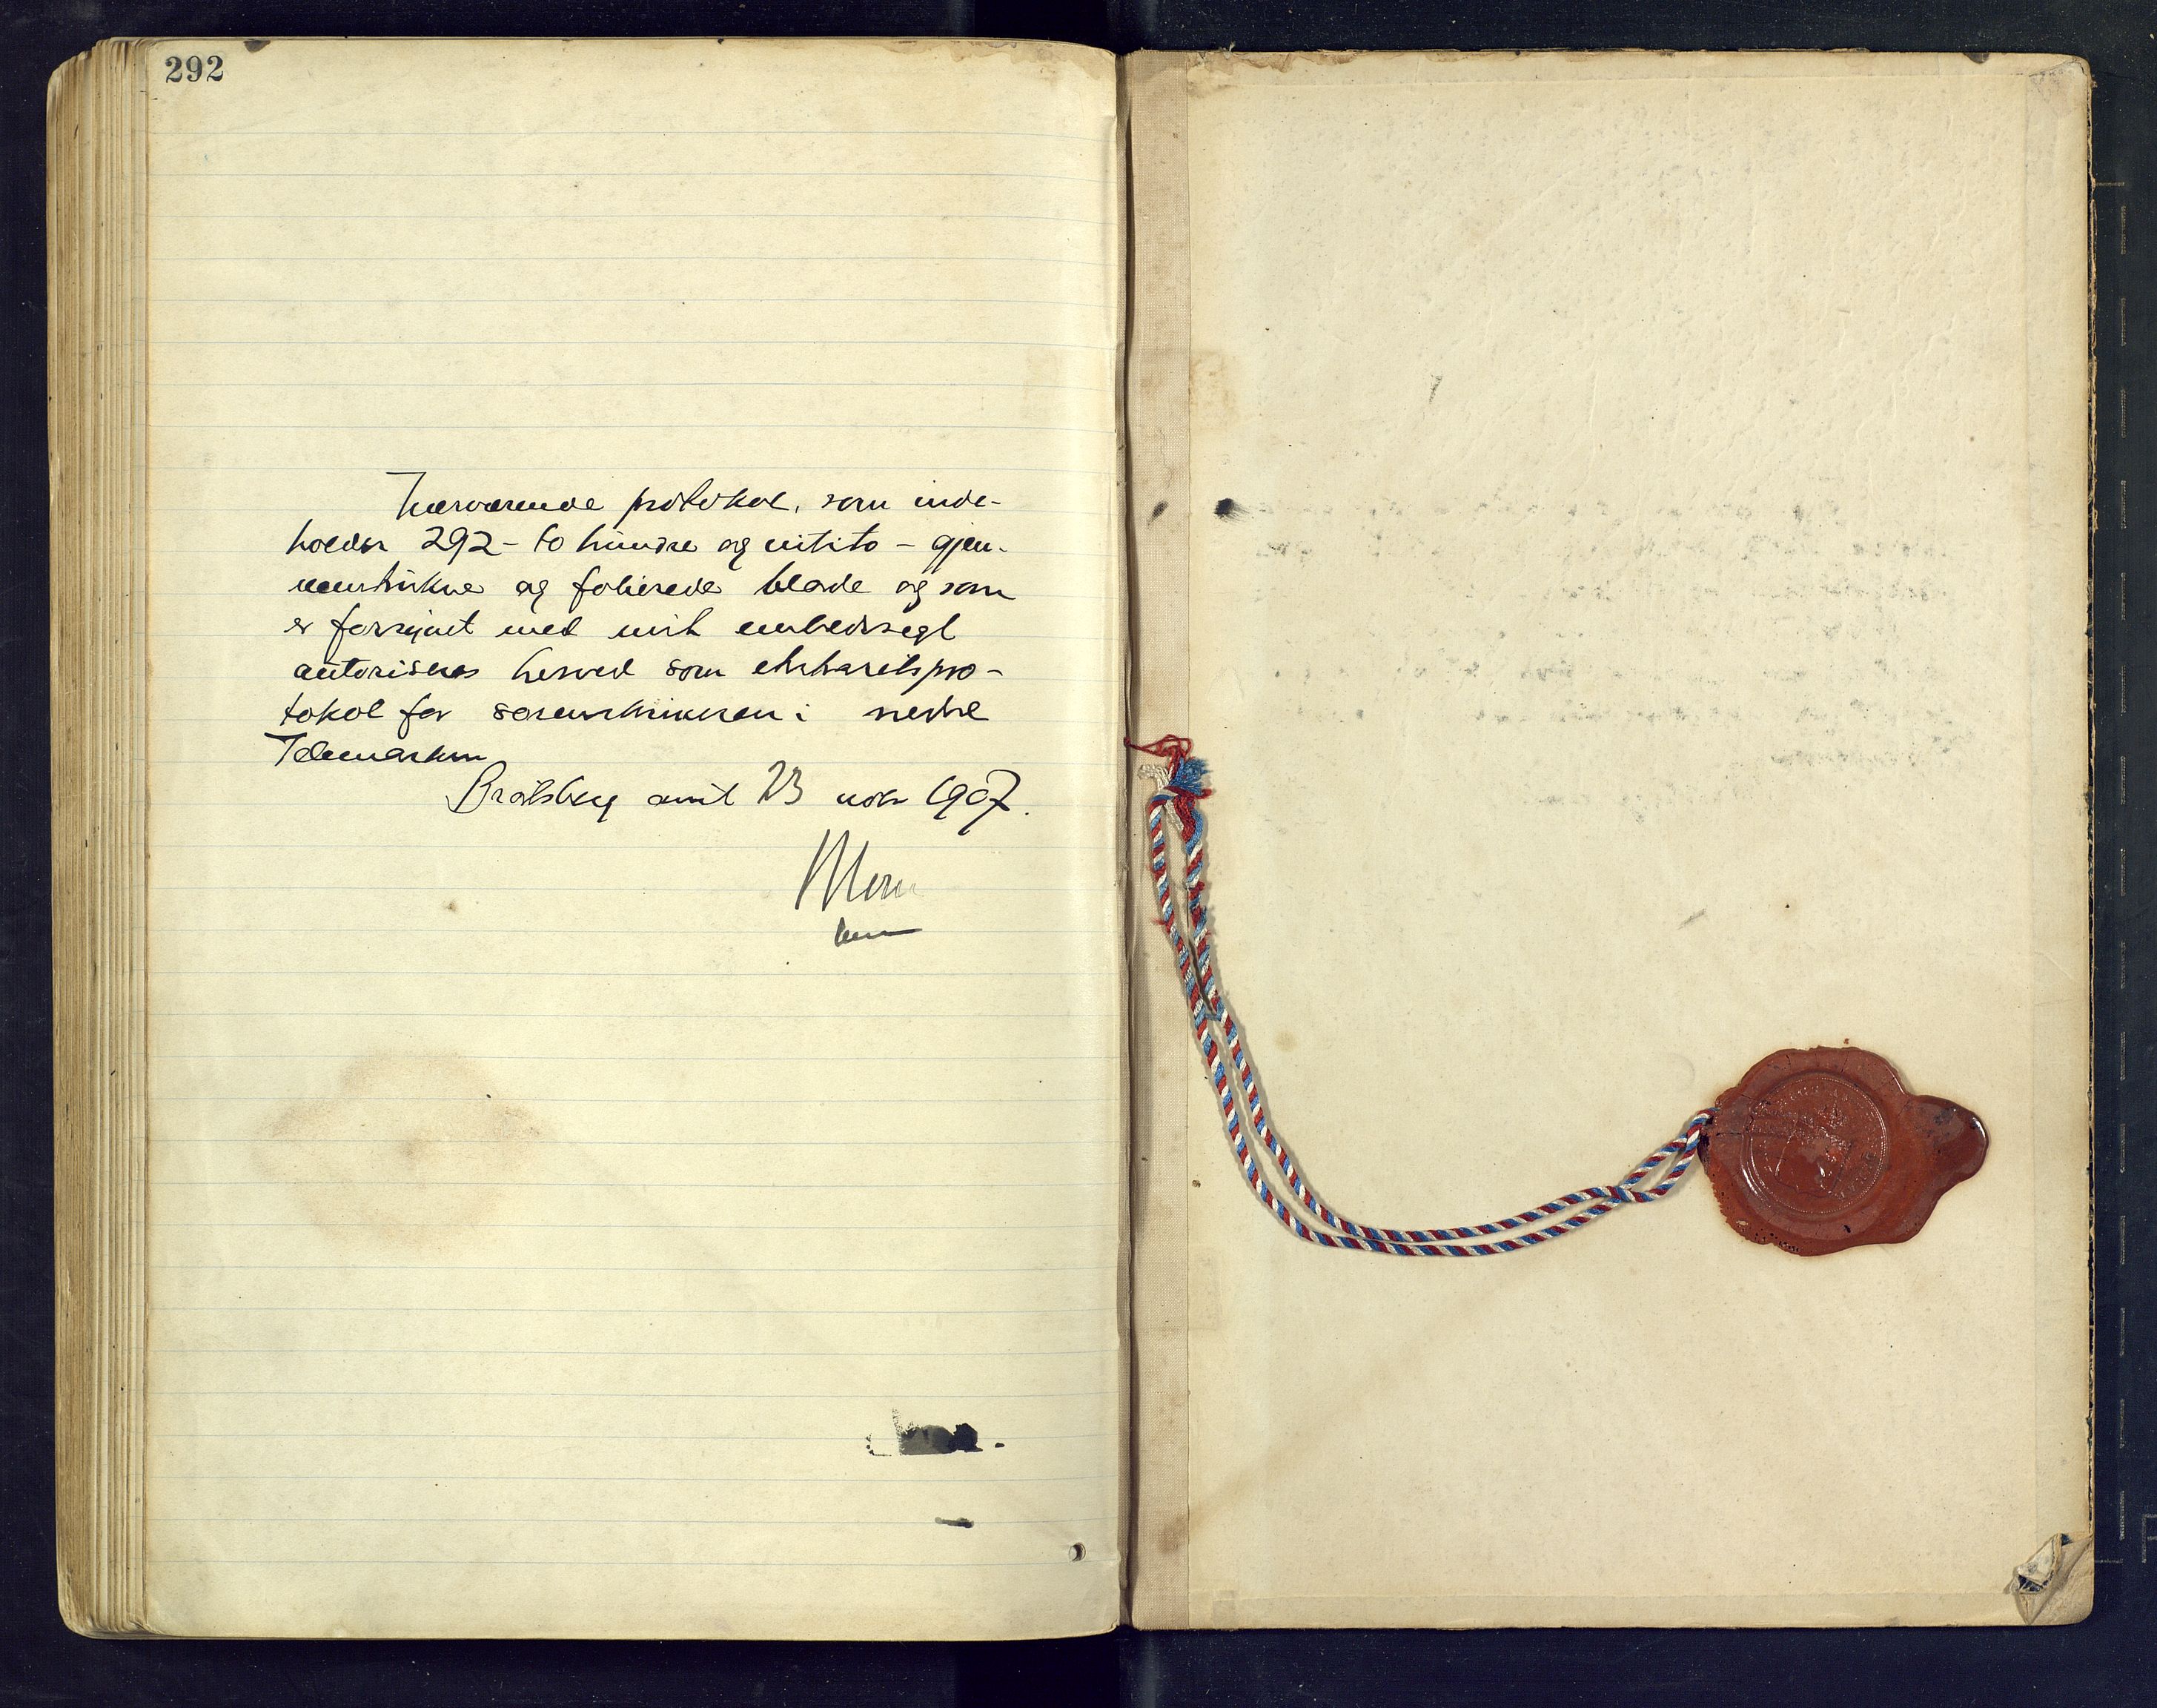 292
Nærværende protokol, som inde-
holder 292 - to hundre og nitito - gjen-
nemtrukne og folierede blade og som
er forsynet med mit embedssegl
autoriseres herved som ekstraretspro-
tokol for sorenskriveren i nedre
Telemarken
Bratsberg amt 23 novbr 1907.